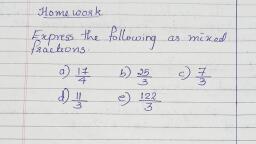 Homework
Express the following as mixed
fractions.
a) 17/4 b) 25/3 c) 7/3
d) 11/3 e) 122/3